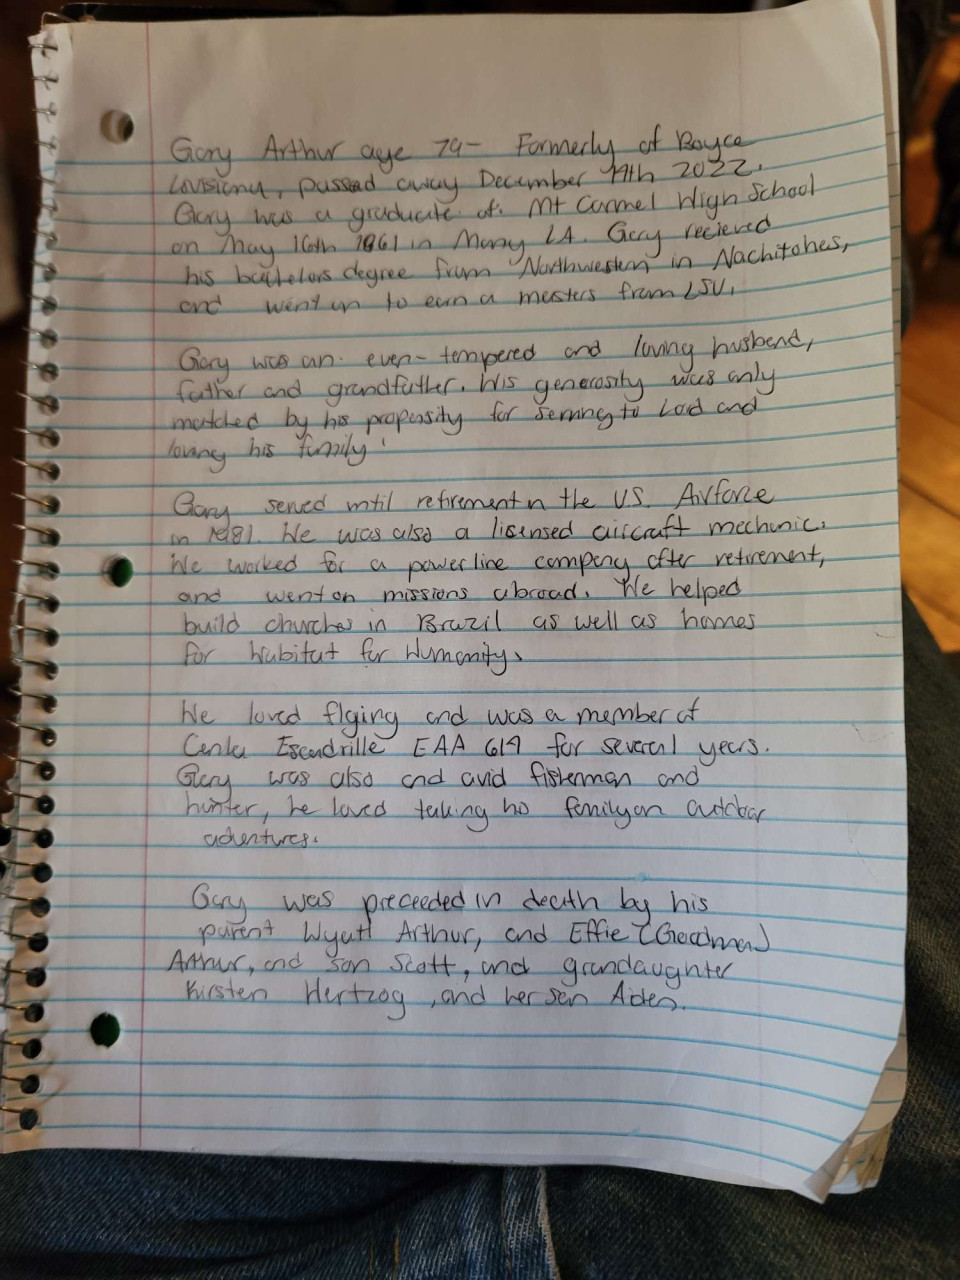 Gary Arthur age 79- Formerly of Boyce
Lovisiany, passed away December 19th 2022.
Gary was a graduate of. Mt Carmel High School
on May 16th 1961 in Many LA. Gary recieved
his bachelors degree from Northwestern in Nachitohes,
and went on to earn a masters from LSU.
Gary was an. even-tempered and loving husband,
father and grandfather. His generosity was only
matched by his propensity for serving to Lord and
loving his family!
Gary served until retirement n the US. Airforce
in 1981. He was also a lisensed aircraft mechanic.
He worked for a power line company after retirement,
and went on missions abroad. He helped
build churches in Brazil as well as homes
for Habitat for Humanity.
He loved flying and was a member of
Cenla Escadrille EAA 614 for several years.
Gary was also and avid fisherman and
hunter, he loved taking his family on outdoor
adentures.
Gary was preceeded in death by his
parent Wyatt Arthur, and Effie (Goodman)
Arthur, and son Scott, and grandaughter
Kirsten Hertzog, and her son Aiden.